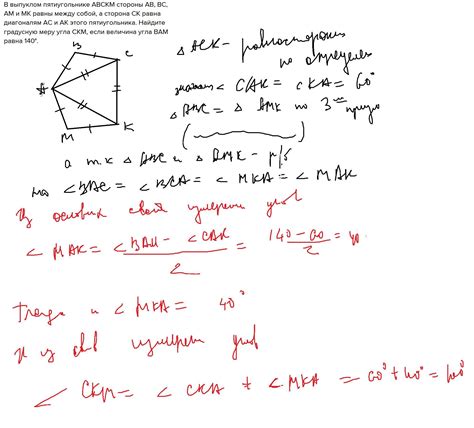 В выпуклом пятиугольнике ABCKM стороны AB, BC,
AM и MK равны между собой, а сторона CK равна
диагоналям AC и AK этого пятиугольника. Найдите
градусную меру угла CKM, если величина угла BAM
равна 140°.
B
C
A
M
K
△ ACK - равносторон
по определен
значит < CAK = < CKA = 60°
△ ABC = △ AMK по 3
а т.к △ ABC и △ AMK - р/б
то < BAC = < BCA = < MKA = < MAK
Из основн свойс измерен углов
< MAK = < BAM - < CAK / 2 = 140 - 60 / 2 = 40
Тогда и < MKA = 40°
и из свой измерен углов
< CKM = < CKA + < MKA = 60° + 40° = 100°